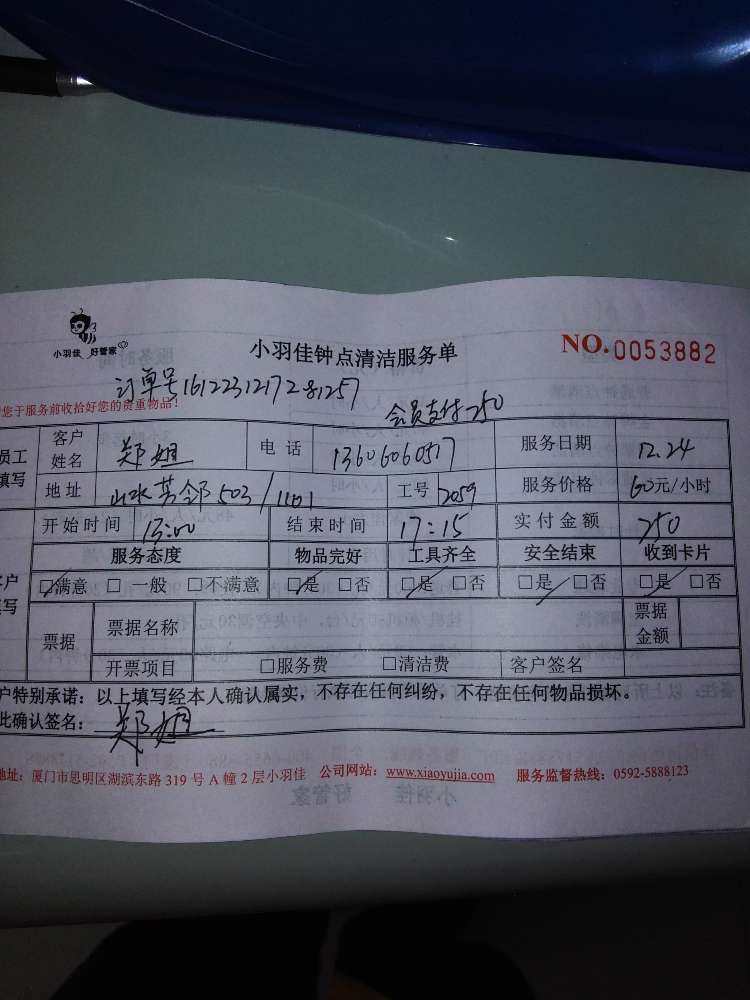 小羽佳 好管家
小羽佳钟点清洁服务单
NO.0053882
订单号161223121728 81257
您于服务前收拾好您的贵重物品!
会员支付250
员工填写
客户姓名 郑姐 电话 13606060517 服务日期 12.24
地址 山水芳邻503/1101 工号 2059 服务价格 60元/小时
开始时间 13:00 结束时间 17:15 实付金额 250
服务态度 物品完好 工具齐全 安全结束 收到卡片
客户填写
☑满意 □一般 □不满意 ☑是 □否 ☑是 □否 □是 ☑否 ☑是 □否
票据 票据名称 票据金额
开票项目 □服务费 □清洁费 客户签名
户特别承诺:以上填写经本人确认属实,不存在任何纠纷,不存在任何物品损坏。
此确认签名:郑姐
地址:厦门市思明区湖滨东路319号A幢2层小羽佳 公司网站:www.xiaoyujia.com 服务监督热线:0592-5888123